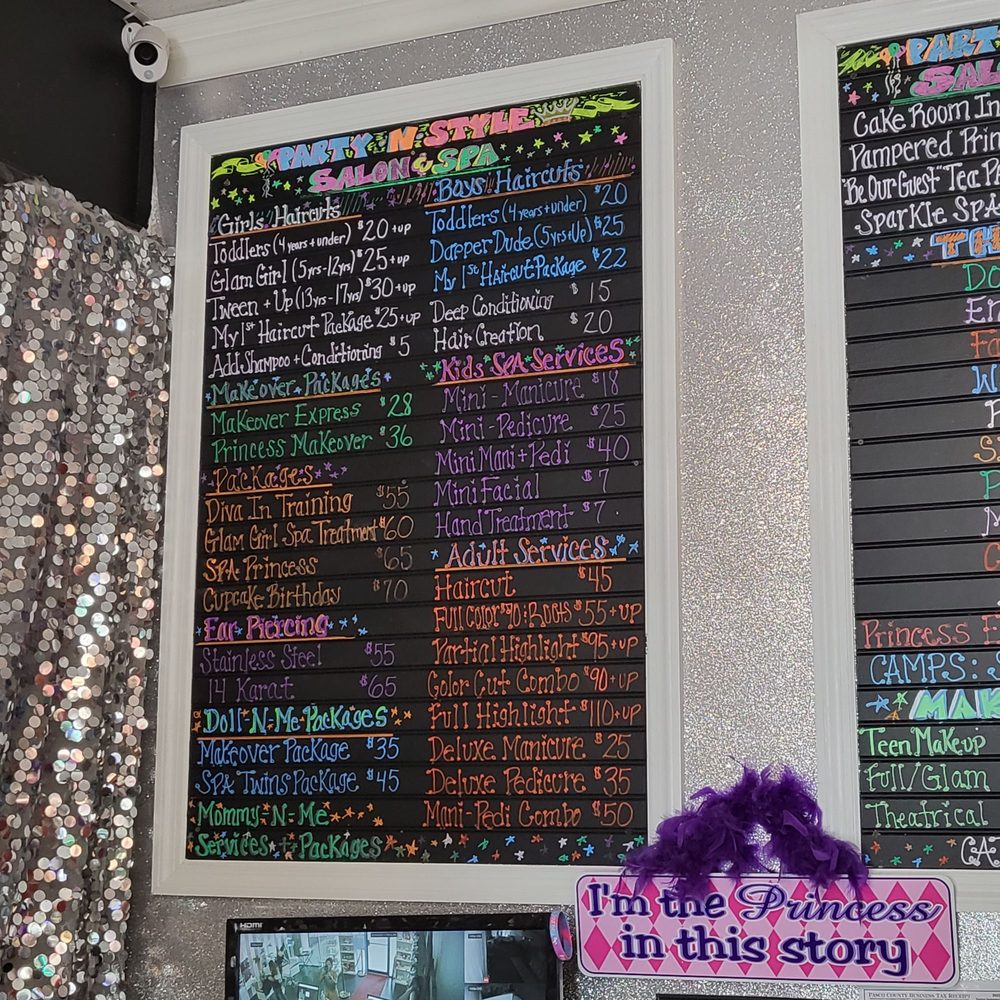 PARTY·N·STYLE
SALON & SPA
Girls Haircuts
Toddlers (4 years + under) $20 + up
Glam Girl (5yrs-12yrs) $25 + up
Tween + Up (13yrs-17yrs) $30 + up
My 1st Haircut Package $25 + up
Add Shampoo + Conditioning $5
Makeover Packages
Makeover Express $28
Princess Makeover $36
Packages
Diva In Training $55
Glam Girl Spa Treatment $60
SPA Princess $65
Cupcake Birthday $70
Ear Piercing
Stainless Steel $55
14 Karat $65
Doll-N-Me Packages
Makeover Package $35
SPA Twins Package $45
Mommy-N-Me
Services + Packages
Boys Haircuts
Toddlers (4 years + under) $20
Dapper Dude (5yrs + Up) $25
My 1st Haircut Package $22
Deep Conditioning $15
Hair Creation $20
Kids SPA Services
Mini-Manicure $18
Mini-Pedicure $25
Mini Mani + Pedi $40
Mini Facial $7
Hand Treatment $7
Adult Services
Haircut $45
Full Color $90: Roots $55 + up
Partial Highlight $95 + up
Color Cut Combo $90 + up
Full Highlight $110 + up
Deluxe Manicure $25
Deluxe Pedicure $35
Mani-Pedi Combo $50
PART
SAL
Cake Room In
Pampered Prin
"Be Our Guest" Tea PA
Sparkle SPA
TH
Do
En
Fa
W
Princess F
CAMPS: S
MAK
Teen Makeup
Full/Glam
Theatrical
CA
HDMI
I'm the Princess
in this story
PASCO COUNTY BUSINESS TAX RECEIPT